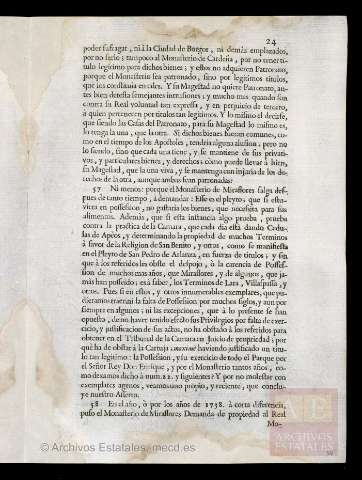 24
poder sufragar, ni à la Ciudad de Burgos, ni demás emplazados,
por no serlo; tampoco al Monasterio de Cardeña, por no tener ti-
tulo legitimo para dichos bienes; y estos no adquieren Patronato,
porque el Monasterio sea patronado, sino por legitimos titulos,
que les constituìa en tales. Y su Magestad no quiere Patronato, an-
tes bien detesta semejantes intrusiones; y mucho mas quando son
contra su Real voluntad tan expressa, y en perjuicio de tercero,
à quien pertenecen por titulos tan legitimos. Y lo mismo al decirse,
que siendo las Casas del Patronato, para su Magestad lo mismo es,
lo tenga la una, que la otra. Si dichos bienes fueran comunes, co-
mo en el tiempo de los Apostoles, tendria alguna alusion: pero no
lo siendo, sino que cada una tiene, y se mantiene de sus privati-
vos, y particulares bienes, y derechos; còmo puede llevar à bien,
su Magestad, que la una viva, y se mantenga con injuria de los de-
rechos de la otra, aunque ambas sean patronadas?
57 Ni menos: porque el Monasterio de Miraflores salga des-
pues de tanto tiempo, à demandar: Esse es el pleyto; que si estu-
viera en possession, no gastaria los bienes, que necessita para sus
alimentos. Además, que si esta instancia algo prueba, prueba
contra la practica de la Camara, que cada dia està dando Cedu-
las de Apèos, y determinando la propiedad de muchos Terminos
à favor de la Religion de San Benito, y otros, como se manifiesta
en el Pleyto de San Pedro de Arlanza, en fuerza de titulos; y sin
que à los referidos les obste el despojo, ò la carencia de Posses-
sion de muchos mas años, que Miraflores, y de algunos, que ja-
màs han posseìdo; es à saber, los Terminos de Lara, Villaspassa, y
otros. Pues si en estos, y otros innumerables exemplares, que pu-
dieramos traer, ni la falta de Possession por muchos siglos, y aun por
siempre en algunos; ni las excepciones, que à lo presente se han
opuesto, de no haver tenido efecto sus Privilegios por falta de exer-
cicio, y justificacion de sus actos, no ha obstado à los referidos para
obtener en el Tribunal de la Camara en Juicio de propiedad; por
què ha de obstar à la Cartuja haviendo justificado un titu-
lo tan legitimo: la Possession, y su exercicio de todo el Parque por
el Señor Rey Don Enrique, y por el Monasterio tantos años, co-
mo dexamos dicho à num.21. y siguientes? Y por no molestar con
exemplares agenos, veamos uno propio, y reciente, que conclu-
ye nuestro Assunto.
58 En el año, ò por los años de 1738. à corta diferencia,
puso el Monasterio de Miraflores Demanda de propiedad al Real
Mo-
AE
ARCHIVOS
ESTATALES
© Archivos Estatales, mecd.es